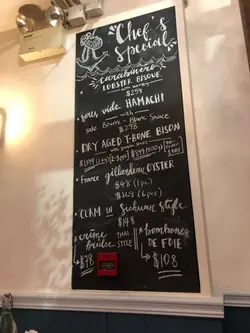 Chef's
Special
Carabinero
LOBSTER BISQUE
$258
• Sous vide HAMACHI
with
Sake Beurre - Blanc Sauce
$298
• DRY AGED T-BONE BISON
• France gillardeau OYSTER
$48 (1pc)
$268 (6pc)
• CLAM IN Sichuan Style
$148
• crème
brûlée
THAI
STYLE
$78
• trombone
DE FOIE
$198